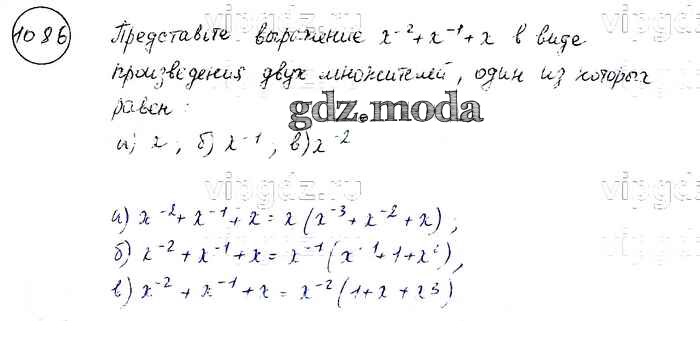 1086
Представьте выражение x⁻²+x⁻¹+x в виде
произведения двух множителей, один из которых
равен:
а) x, б) x⁻¹, в) x⁻²
gdz.moda
vipgdz.ru vipgdz.ru
а) x⁻²+x⁻¹+x = x(x⁻³+x⁻²+x),
б) x⁻²+x⁻¹+x = x⁻¹(x⁻¹+1+x²),
в) x⁻²+x⁻¹+x = x⁻²(1+x+x3)